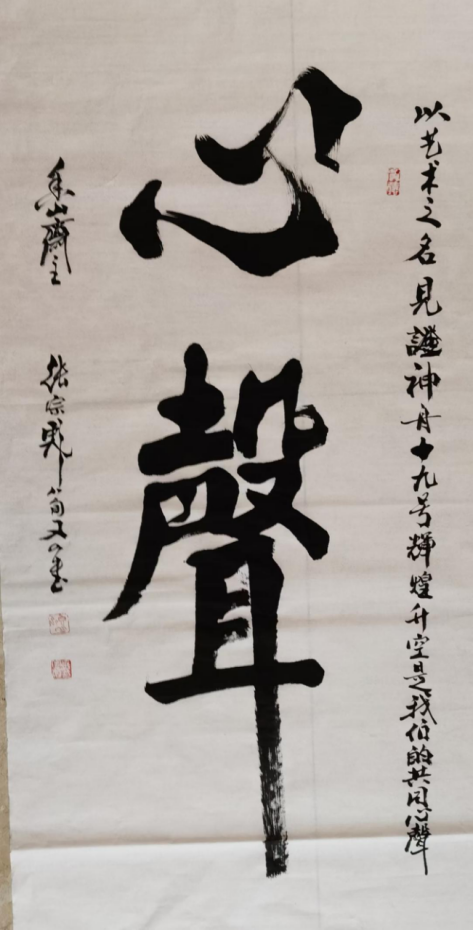 以艺术之名見證神舟十九号輝煌升空是我们的共同心聲
心聲
香山齋主
張宗彪
书